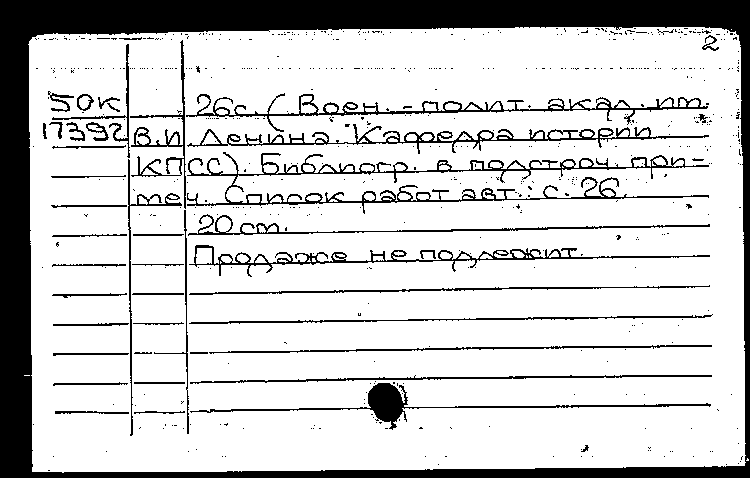 2
50К 26с. (Воен.-полит. акад. им.
17392 В.И. Ленина. Кафедра истории
КПСС). Библиогр. в подстроч. при-
меч. Список работ авт.: с. 26.
20 см.
Продаже не подлежит.